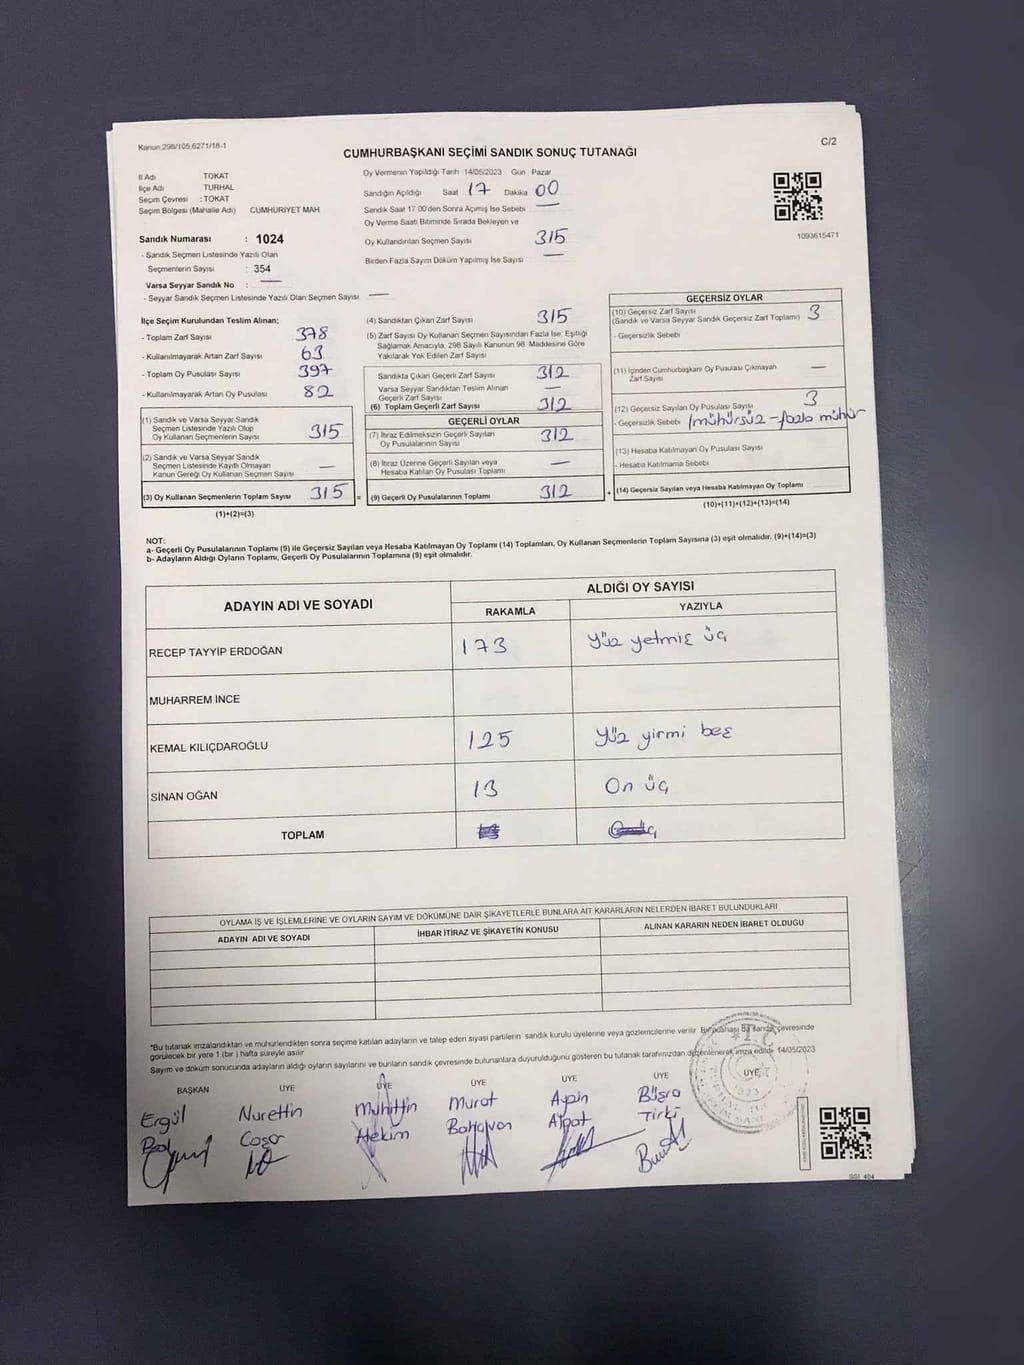 Kanun:298/105,6271/18-1
C/2
CUMHURBAŞKANI SEÇİMİ SANDIK SONUÇ TUTANAĞI
İl Adı TOKAT
İlçe Adı TURHAL
Seçim Çevresi : TOKAT
Seçim Bölgesi (Mahalle Adı) CUMHURIYET MAH
Sandık Numarası : 1024
- Sandık Seçmen Listesinde Yazılı Olan
Seçmenlerin Sayısı : 354
Varsa Seyyar Sandık No : —
- Seyyar Sandık Seçmen Listesinde Yazılı Olan Seçmen Sayısı —
Oy Vermenin Yapıldığı Tarih 14/05/2023 Gün Pazar
Sandığın Açıldığı Saat 17 Dakika 00
Sandık Saat 17:00'den Sonra Açımış İse Sebebi —
Oy Verme Saati Bitiminde Sırada Bekleyen ve
Oy Kullandırılan Seçmen Sayısı 315
Birden Fazla Sayım Döküm Yapılmış İse Sayısı —
1093615471
İlçe Seçim Kurulundan Teslim Alınan;
- Toplam Zarf Sayısı 378
- Kullanılmayarak Artan Zarf Sayısı 63
- Toplam Oy Pusulası Sayısı 397
- Kullanılmayarak Artan Oy Pusulası 82
(1) Sandık ve Varsa Seyyar Sandık
Seçmen Listesinde Yazılı Olup
Oy Kullanan Seçmenlerin Sayısı 315
(2) Sandık ve Varsa Seyyar Sandık
Seçmen Listesinde Kayıtlı Olmayan
Kanun Gereği Oy Kullanan Seçmen Sayısı —
(3) Oy Kullanan Seçmenlerin Toplam Sayısı 315 =
(1)+(2)=(3)
(4) Sandıktan Çıkan Zarf Sayısı 315
(5) Zarf Sayısı Oy Kullanan Seçmen Sayısından Fazla İse, Eşitliği
Sağlamak Amacıyla, 298 Sayılı Kanunun 98. Maddesine Göre
Yakılarak Yok Edilen Zarf Sayısı
Sandıkta Çıkan Geçerli Zarf Sayısı 312
Varsa Seyyar Sandıktan Teslim Alınan
Geçerli Zarf Sayısı —
(6) Toplam Geçerli Zarf Sayısı 312
GEÇERLİ OYLAR
(7) İtiraz Edilmeksizin Geçerli Sayılan
Oy Pusulalarının Sayısı 312
(8) İtiraz Üzerine Geçerli Sayılan veya
Hesaba Katılan Oy Pusulası Toplamı —
(9) Geçerli Oy Pusulalarının Toplamı 312 +
GEÇERSİZ OYLAR
(10) Geçersiz Zarf Sayısı
(Sandık ve Varsa Seyyar Sandık Geçersiz Zarf Toplamı) 3
- Geçersizlik Sebebi
(11) İçinden Cumhurbaşkanı Oy Pusulası Çıkmayan
Zarf Sayısı —
(12) Geçersiz Sayılan Oy Pusulası Sayısı 3
- Geçersizlik Sebebi 1mühürsüz - fazla mühür
(13) Hesaba Katılmayan Oy Pusulası Sayısı
- Hesaba Katılmama Sebebi
(14) Geçersiz Sayılan veya Hesaba Katılmayan Oy Toplamı
(10)+(11)+(12)+(13)=(14)
NOT:
a- Geçerli Oy Pusulalarının Toplamı (9) ile Geçersiz Sayılan veya Hesaba Katılmayan Oy Toplamı (14) Toplamları, Oy Kullanan Seçmenlerin Toplam Sayısına (3) eşit olmalıdır. (9)+(14)=(3)
b- Adayların Aldığı Oyların Toplamı, Geçerli Oy Pusulalarının Toplamına (9) eşit olmalıdır.
ADAYIN ADI VE SOYADI ALDIĞI OY SAYISI
RAKAMLA YAZIYLA
RECEP TAYYİP ERDOĞAN 173 Yüz yetmiş üç
MUHARREM İNCE
KEMAL KILIÇDAROĞLU 125 Yüz yirmi beş
SİNAN OĞAN 13 On üç
TOPLAM
OYLAMA İŞ VE İŞLEMLERİNE VE OYLARIN SAYIM VE DÖKÜMÜNE DAİR ŞİKAYETLERLE BUNLARA AİT KARARLARIN NELERDEN İBARET BULUNDUKLARI
ADAYIN ADI VE SOYADI İHBAR İTİRAZ VE ŞİKAYETİN KONUSU ALINAN KARARIN NEDEN İBARET OLDUĞU
*Bu tutanak imzalandıktan ve mühürlendikten sonra seçime katılan adayların ve talep eden siyasi partilerin sandık kurulu üyelerine veya gözlemcilerine verilir. Bir nüshası da sandık çevresinde
görülecek bir yere 1 (bir) hafta süreyle asılır
Sayım ve döküm sonucunda adayların aldığı oyların sayılarını ve bunların sandık çevresinde bulunanlara duyurulduğunu gösteren bu tutanak tarafımızdan düzenlenerek imza edildi. 14/05/2023
BAŞKAN ÜYE ÜYE ÜYE ÜYE ÜYE ÜYE
Ergül Nurettin Muhittin Murat Aypin Büşra
Coşar Hekim Alpat Tirki
T.C.
SSI 404